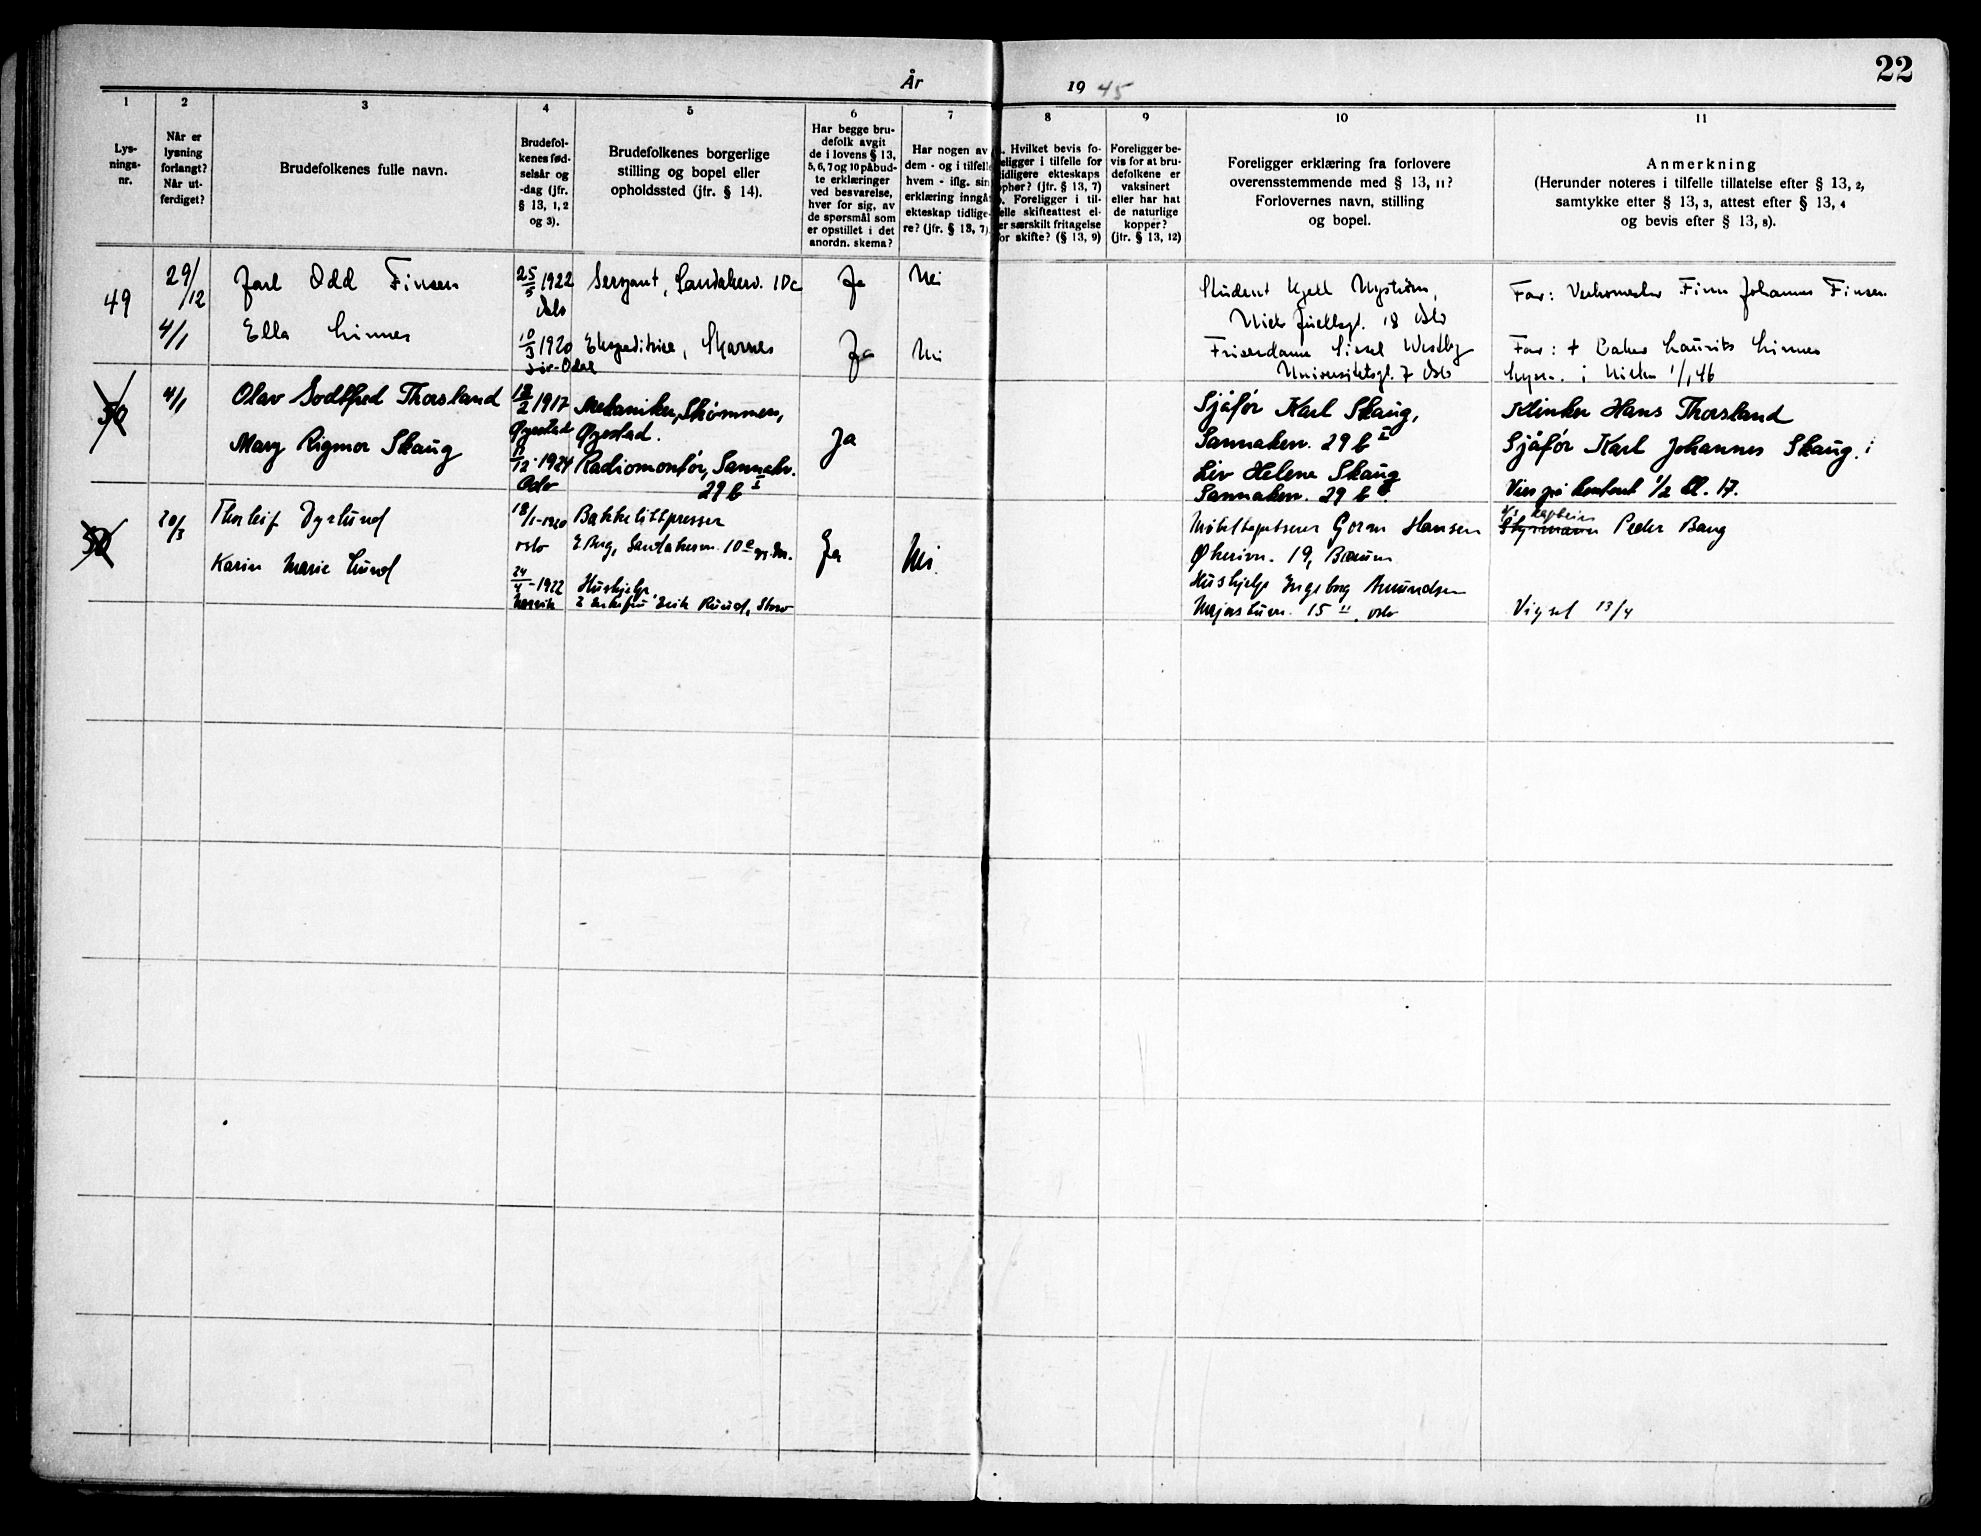 22
År 19 45
1 2 3 4 5 6 7 8 9 10 11
Lys-
nings-
nr.
Når er
lysning
forlangt?
Når ut-
ferdiget?
Brudefolkenes fulle navn.
Brudefol-
kenes fød-
selsår og
-dag (jfr.
§ 13, 1, 2
og 3).
Brudefolkenes borgerlige
stilling og bopel eller
opholdssted (jfr. § 14).
Har begge bru-
defolk avgit
de i lovens § 13,
5, 6, 7 og 10 påbud-
te erklæringer
ved besvarelse,
hver for sig, av
de spørsmål som
er opstillet i det
anordn. skema?
Har nogen av
dem - og i tilfelle
hvem - iflg. sin
erklæring inngå
ekteskap tidlige-
re? (jfr. § 13, 7)
. Hvilket bevis fo-
eligger i tilfelle for
idligere ekteskaps
phør? (jfr. § 13, 7)
. Foreligger i til-
elle skifteattest el-
er særskilt fritagelse
or skifte? (§ 13, 9)
Foreligger be-
vis for at bru-
defolkene er
vaksinert
eller har hat
de naturlige
kopper?
(jfr. § 13, 12)
Foreligger erklæring fra forlovere
overensstemmende med § 13, 11?
Forlovernes navn, stilling
og bopel.
Anmerkning
(Herunder noteres i tilfelle tillatelse efter § 13, 2,
samtykke efter § 13, 3, attest efter § 13, 4
og bevis efter § 13, 8).
49
29/12
4/1
Jarl Odd Finsen
Ella Linnes
25/5 1922
Oslo
10/3 1920
Sør-Odal
Sersjant, Sandakerv. 10c
Ekspeditrise, Skarnes
Ja
Ja
Nei
Nei
Student Kjell Nystrøm,
Niels Juelsgt. 18 Oslo
Frisørdame Sissel Westby
Universitetsgt. 7 Oslo
Far: Verksmester Finn Johannes Finsen.
Far: + Baker Laurits Linnes
i 1/1 46
50
4/1
Olav Godtfred Thorsland
Mary Rigmor Skaug
12/2 1917
Øyestad
11/12 1924
Oslo
Mekaniker, Strømmen,
Øyestad.
Radiomontør, Sannakv.
29 b I
Ja
Sjåfør Karl Skaug,
Sannakerv. 29 b I
Liv Helene Skaug
Sannakerv. 29 b
Klinker Hans Thorsland
Sjåfør Karl Johannes Skaug.
Vies på kontoret 1/2 kl. 17.
50
20/3
Thorleif Dyrlund
Karin Marie Lund
18/1-1920
Oslo
24/4-1922
Narvik
Bakkelittpresser
E. Berg, Sandakerv. 10
Hushjelp,
Ja
Nei.
Gorm Hansen
19, Bærum
Hushjelp Ingeborg Amundsen
Majorstuvn. 15 II, Oslo
Styrmann Peder Bang
Vigsel 13/4